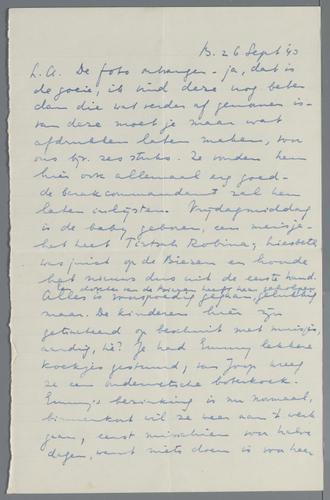 B. 26 Sept 43
L.A. De foto ontvangen - ja, dat is
de goeie, ik vind deze nog beter
dan die wat verder af genomen is -
van deze moet je maar wat
afdrukken laten maken, voor
ons bijv. zes stuks. Ze vonden hem
hier ook allemaal erg goed -
de barakcommandant zal hem
laten inlijsten. Vrijdagmiddag
is de baby geboren, een meisje -
het heet Robina; Liesbeth
was juist op de Biezen en hoorde
het nieuws dus uit de eerste hand.
Een dochter van de heeft haar geholpen.
Alles is voorspoedig gegaan, gelukkig
maar. De kinderen hier zijn
getrakteerd op beschuit met muisjes,
aardig, hè? Je had Emmy lekkere
koekjes gestuurd, van Joop kreeg
ze een ouderwetsche boterkoek.
Emmy's bezinking is nu normaal,
binnenkort wil ze weer aan 't werk
gaan, eerst misschien voor halve
dagen, want niets doen is voor haar